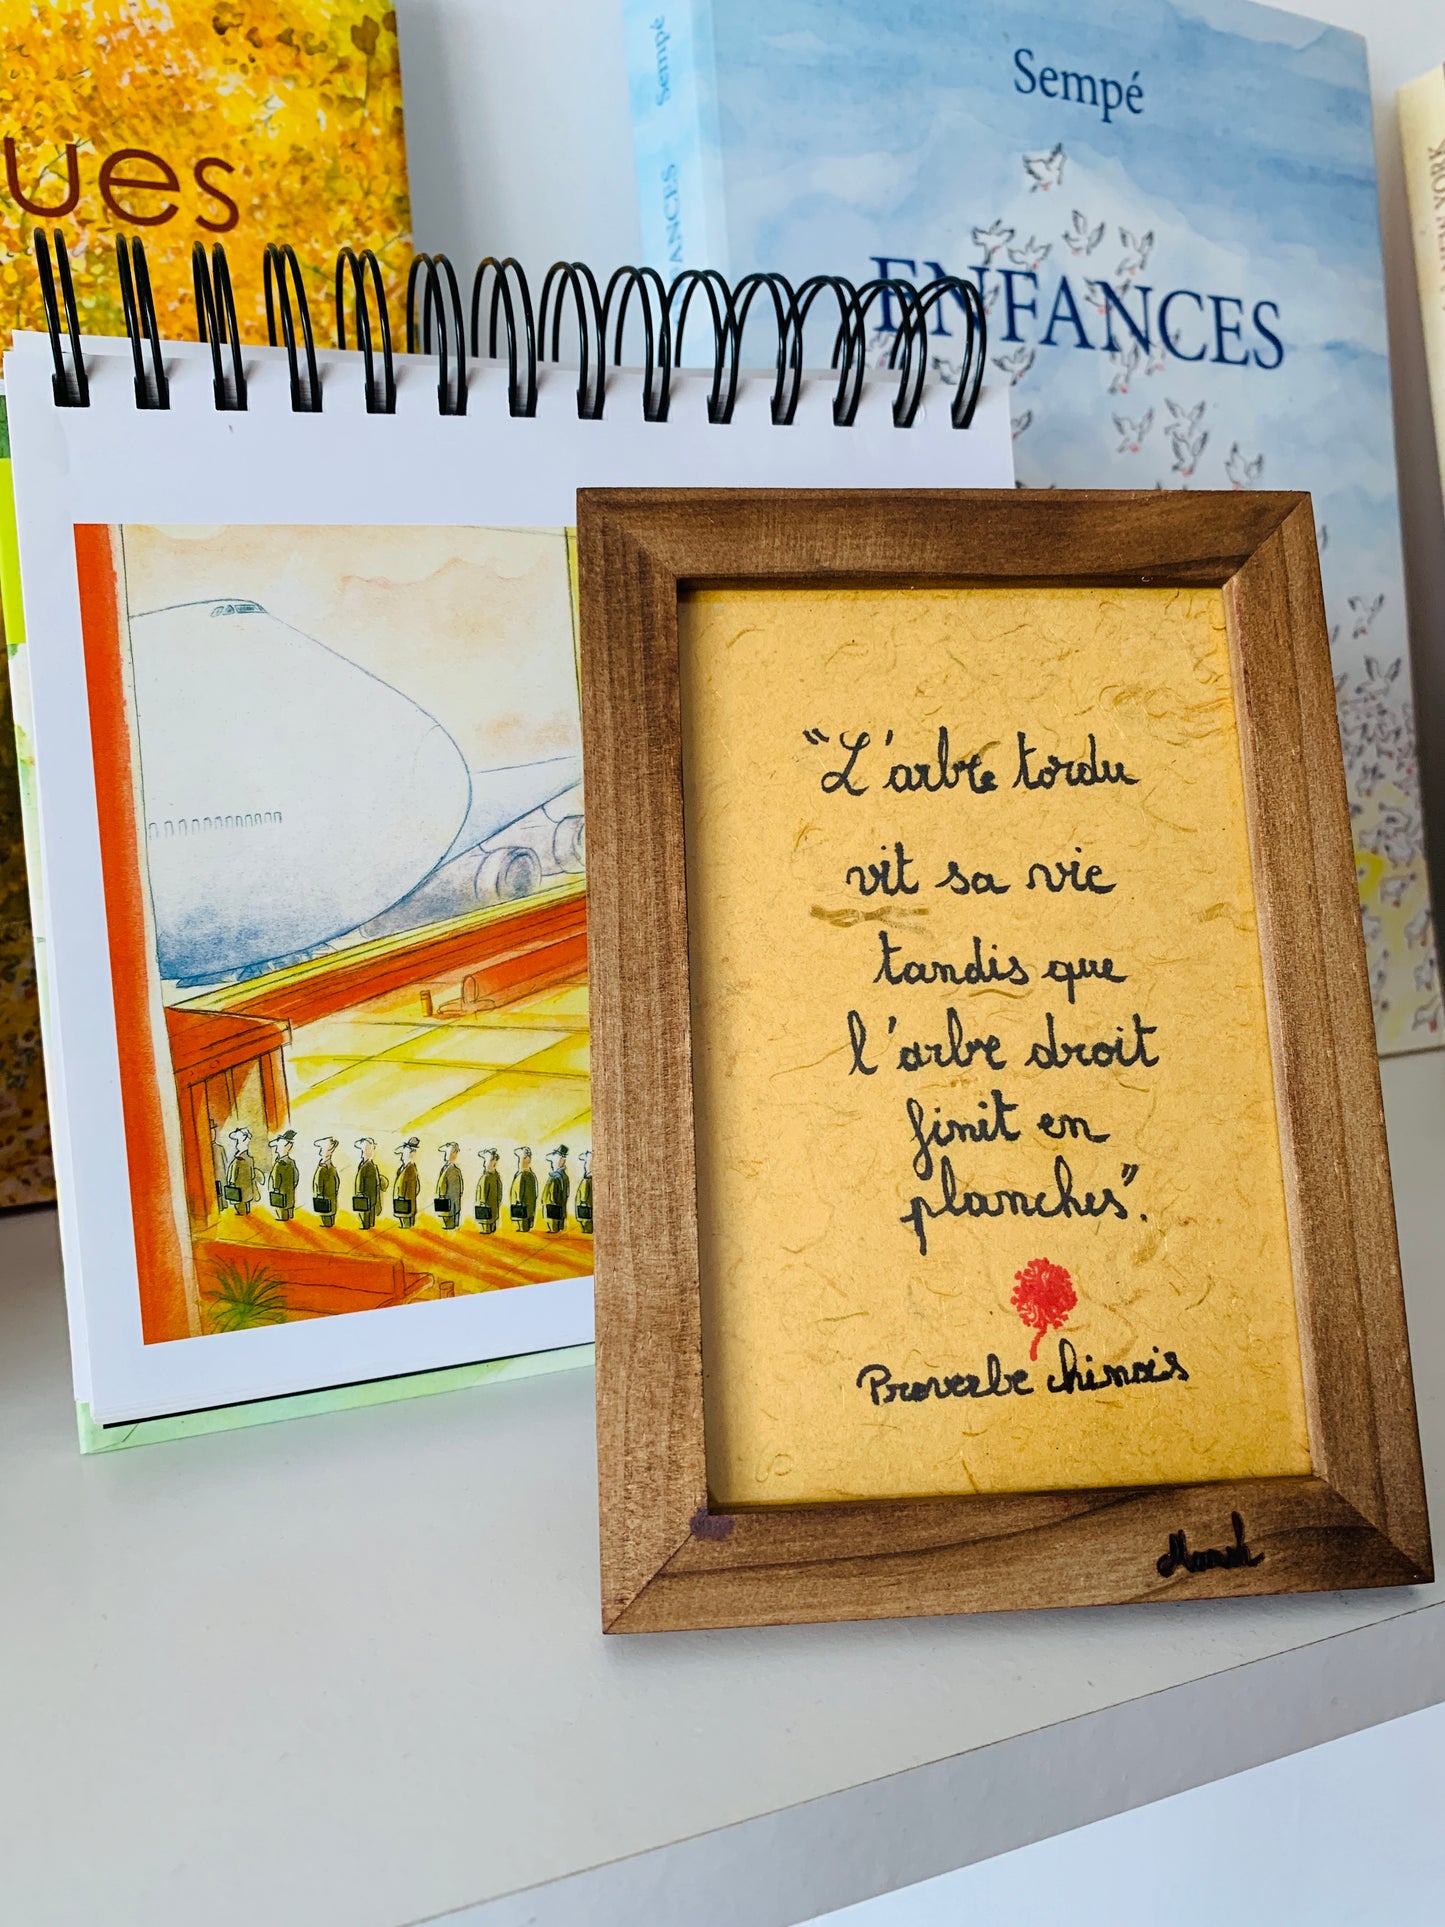 ues
Sempé
ENFANCES
Sempé
ENFANCES
“L'arbre tordu
vit sa vie
tandis que
l'arbre droit
finit en
planches”.
Proverbe chinois